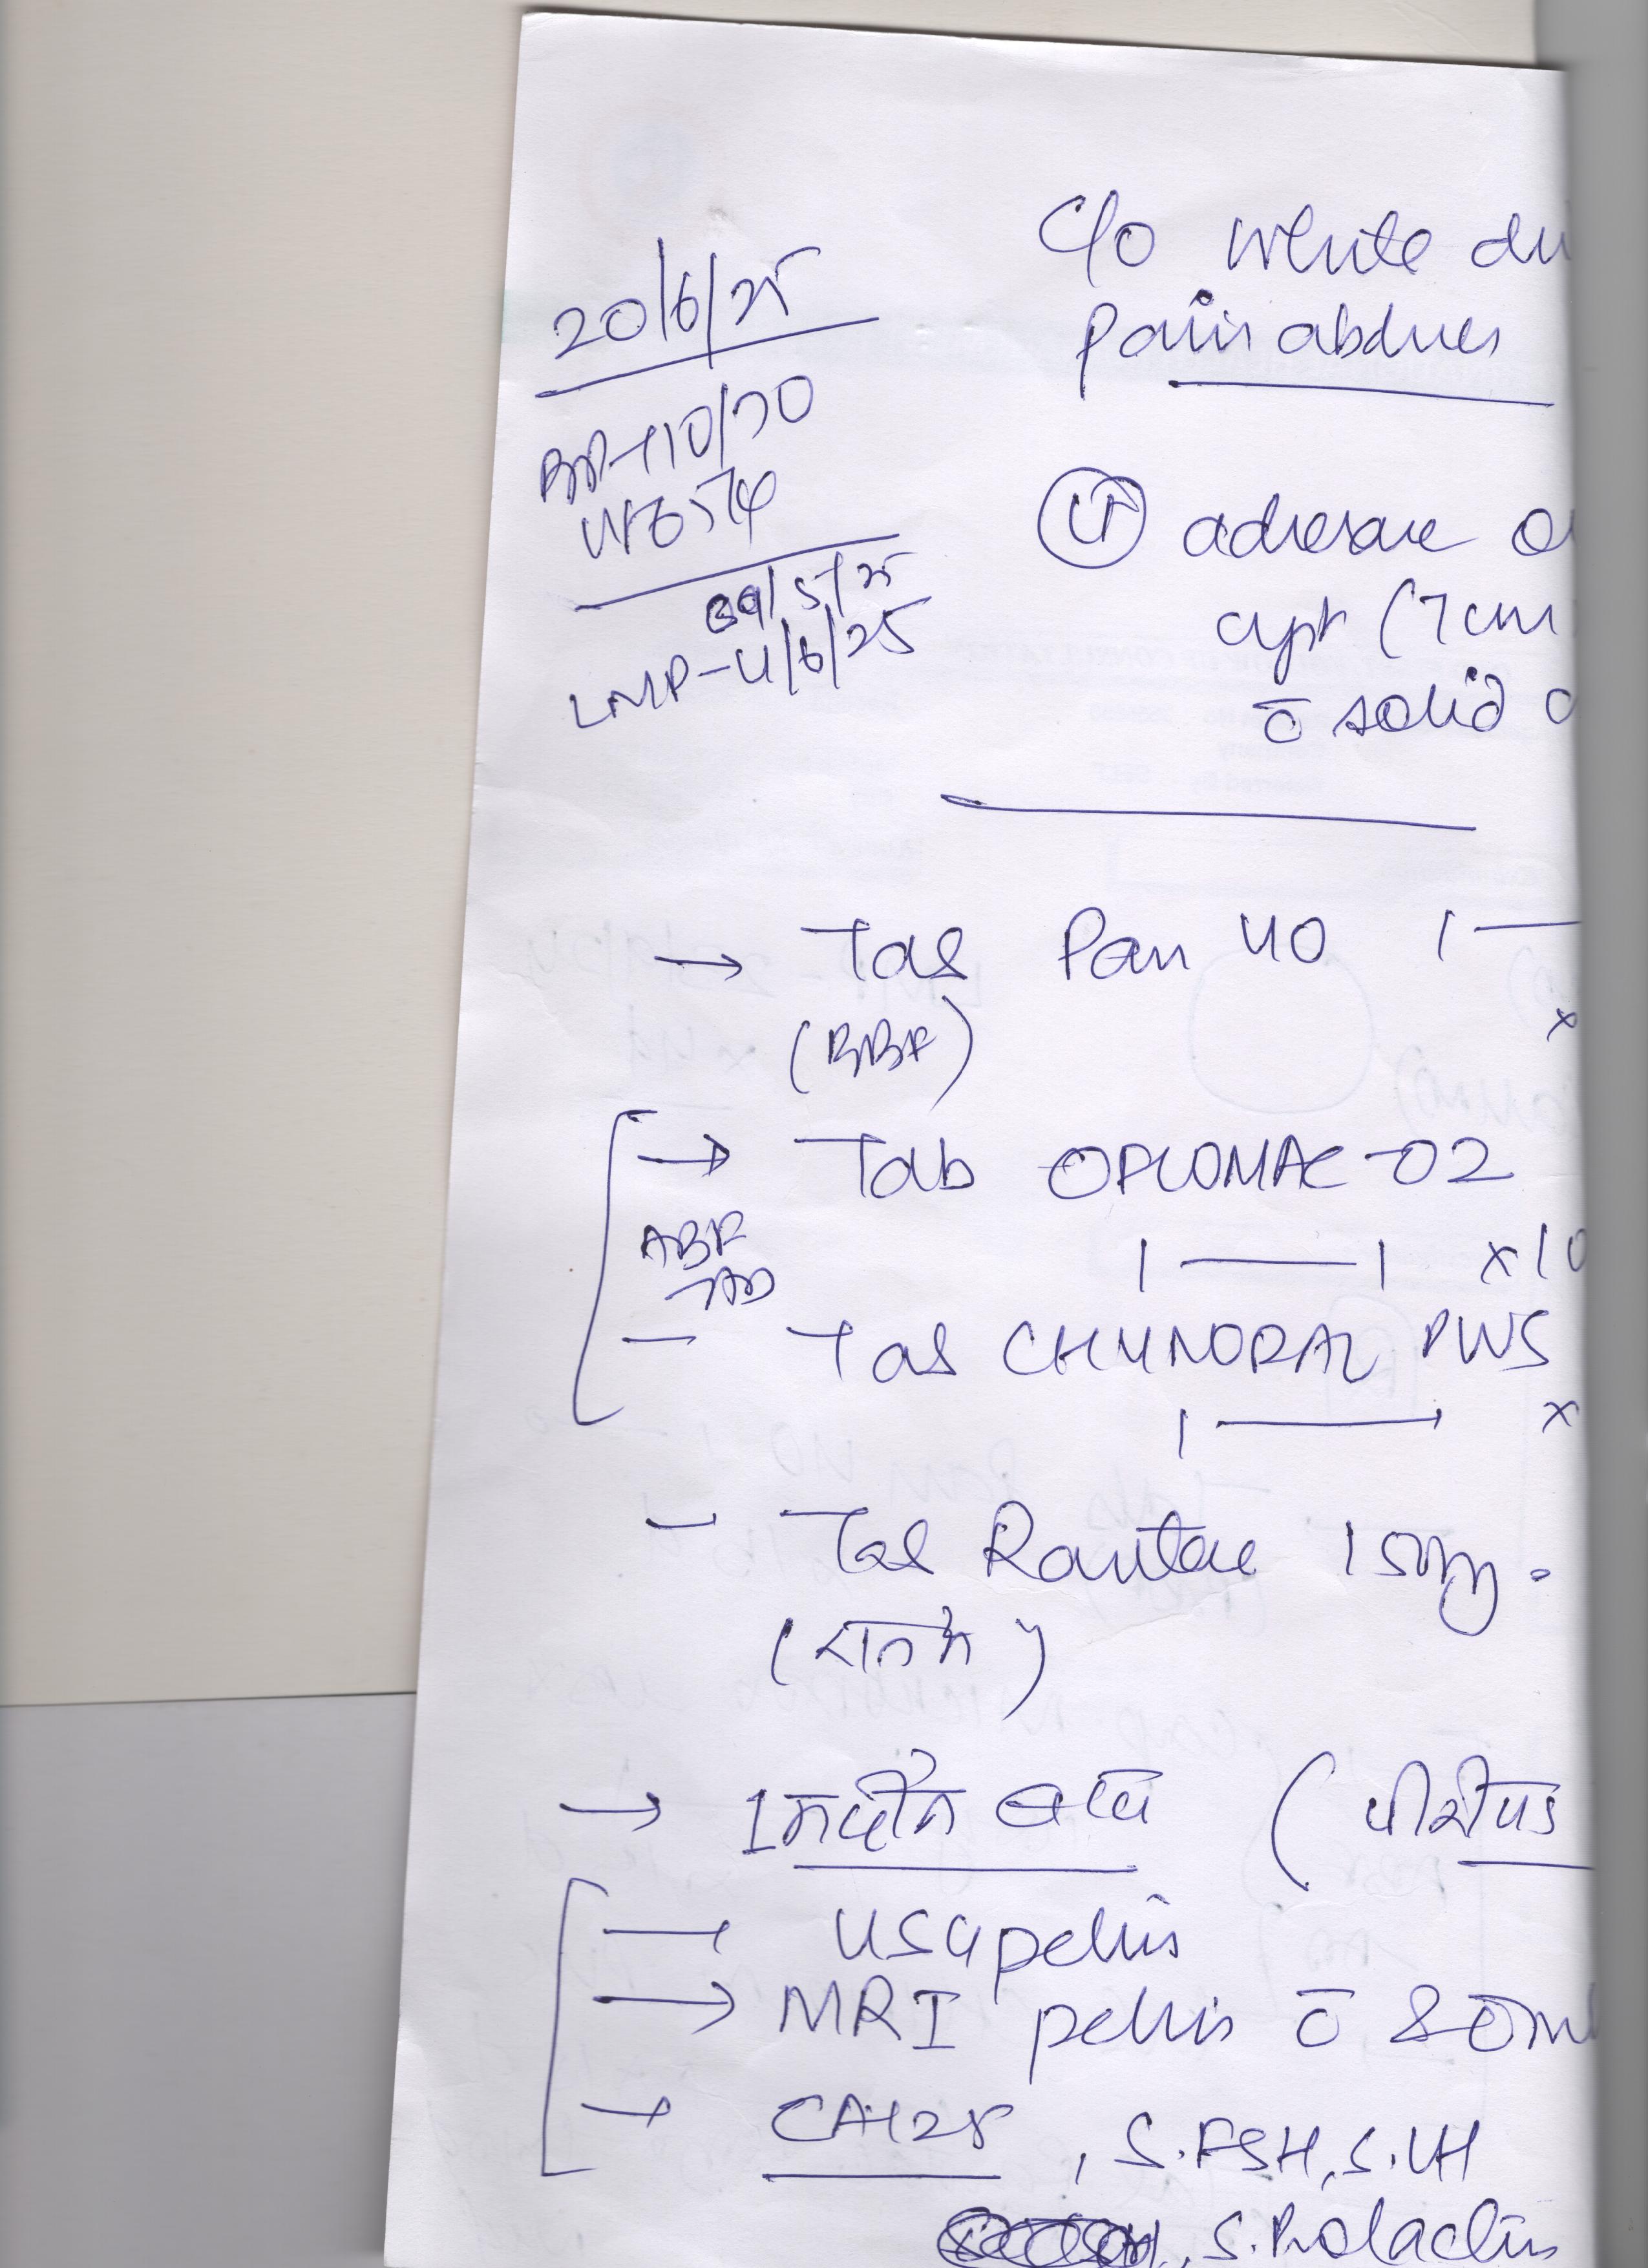 20/6/25
BP-110/70
Wt 574
29/5/25
LMP-4/6/25
C/o white
Pain abdmen
cyst (7cm
c̄ solid
→ Tab Pan 40 1—
(BBF)
×
→ Tab OFLOMAC-OZ
ABF
1 — 1 ×10
- Tab CHYMORAL PLUS
1 — ×
- Tab Rantac 150mg.
(रात में)
→ (
— USG pelvis
→ MRI pelvis c̄
→ CA125, S.FSH, S.LH
, S.Prolactin